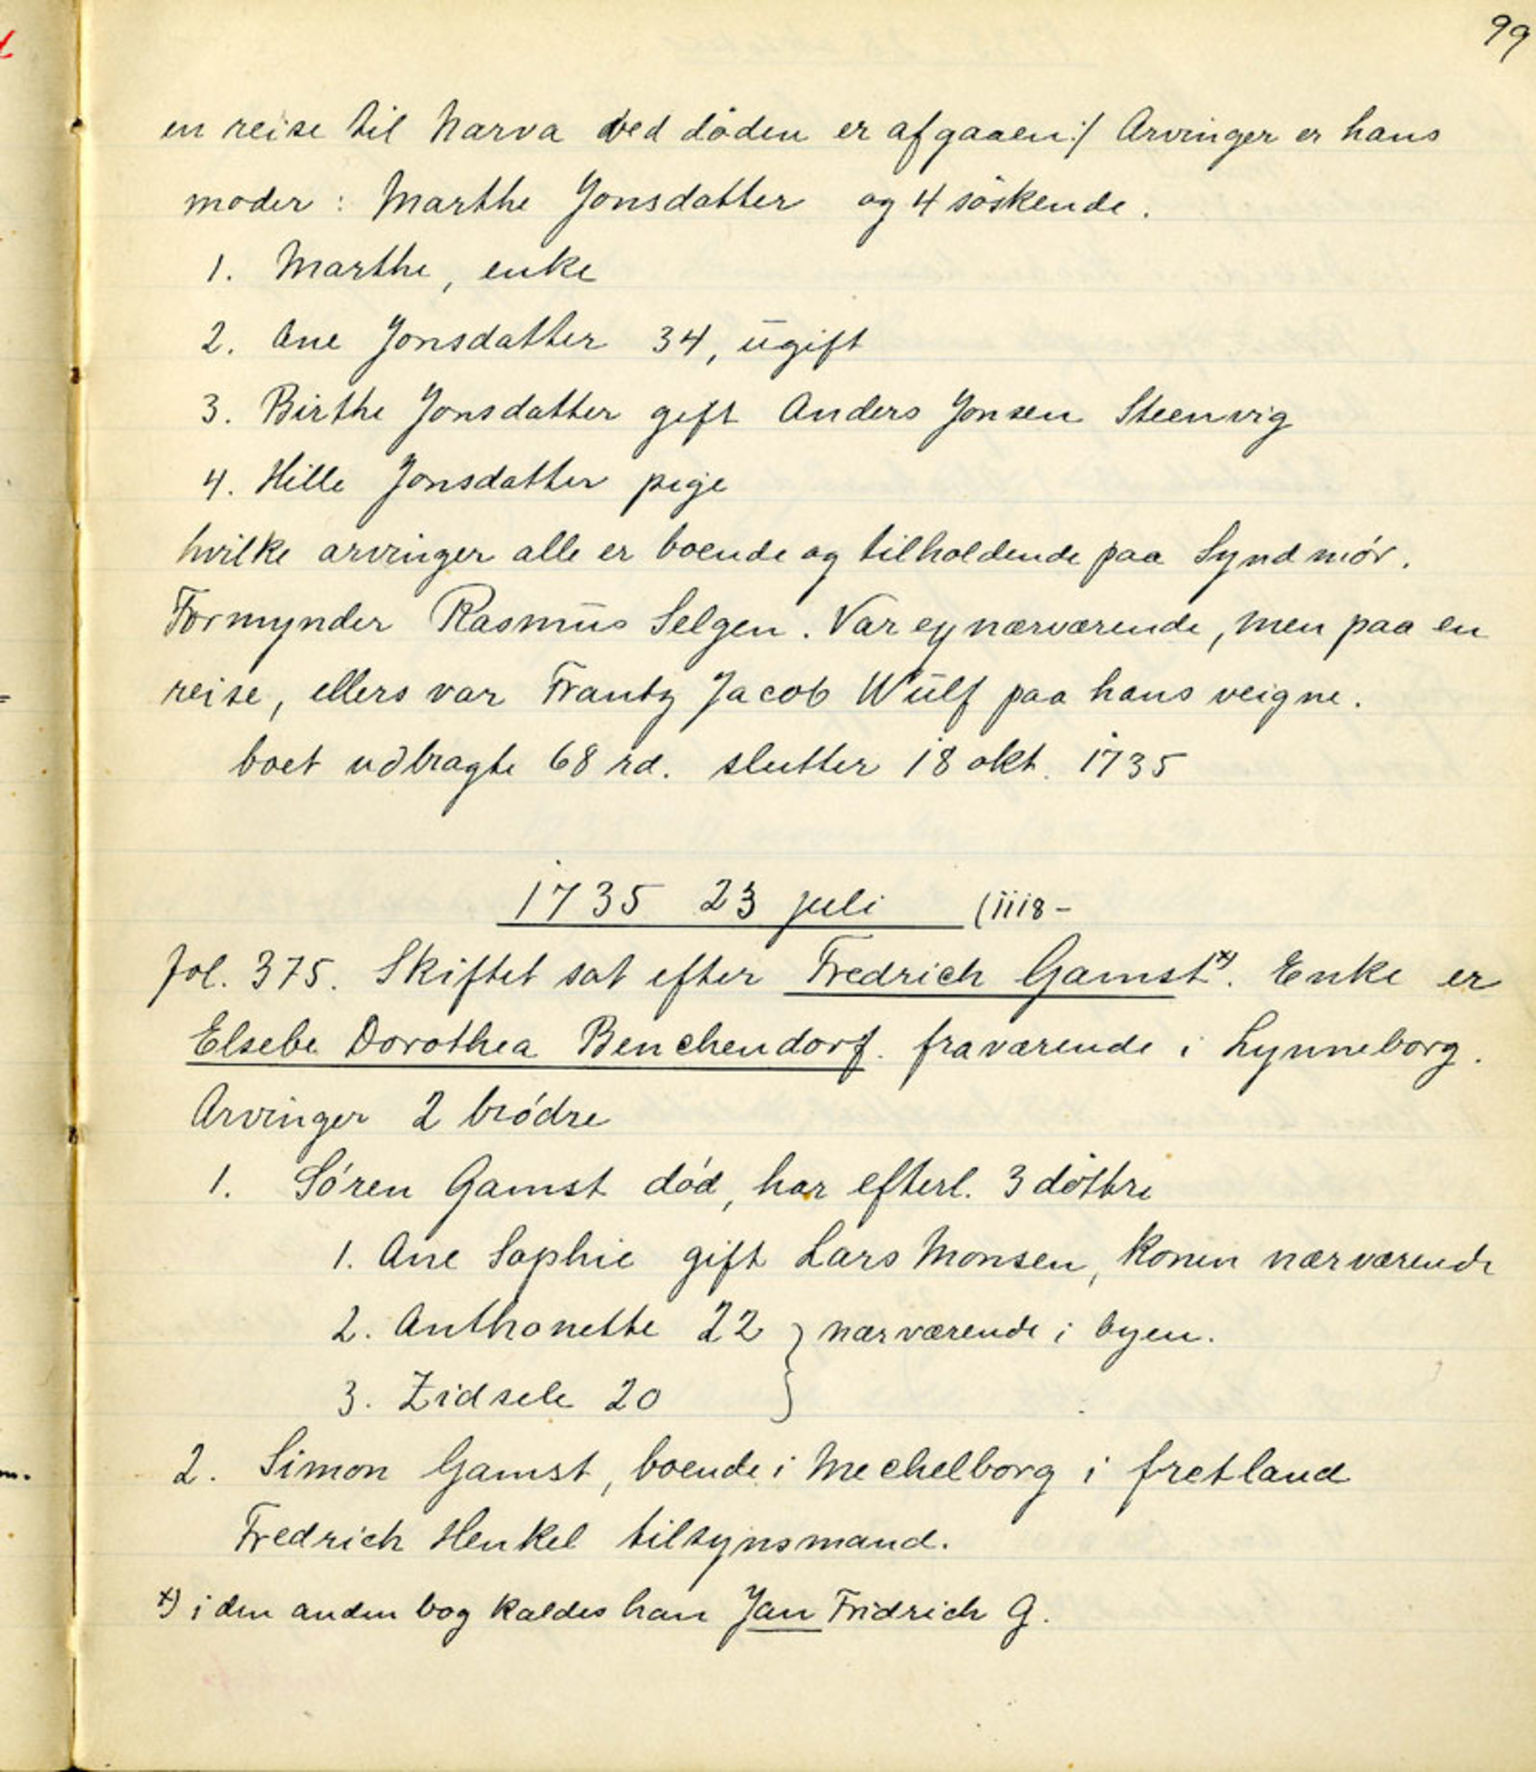 99
en reise til Narva ved døden er afgaaen:/ Arvinger er hans
moder: Marthe Jonsdatter og 4 søskende.
1. Marthe, enke
2. Ane Jonsdatter 34, ugift
3. Birthe Jonsdatter gift Anders Jonsen Steenvig
4. Hille Jonsdatter pige
hvilke arvinger alle er boende og tilholdende paa Syndmør.
Formynder Rasmus Selgen. Var ey nærværende, men paa en
reise, ellers var Frantz Jacob Wulf paa hans veigne.
boet udbragte 68 rd. slutter 18 okt. 1735
1735 23 juli (1118-
fol. 375. Skiftet sat efter Fredrich Gamst x). Enke er
Elsebe Dorothea Benchendorf. fraværende i Lynneborg.
Arvinger 2 brødre
1. Søren Gamst død, har efterl. 3 døttre
1. Ane Sophie gift Lars Monsen, konen nærværende
2. Anthonette 22 } nærværende i byen.
3. Zidsele 20
2. Simon Gamst, boende i Mechelborg i fretland
Fredrich Henkel tilsynsmand.
x) i den anden bog kaldes han Jan Fridrich G.